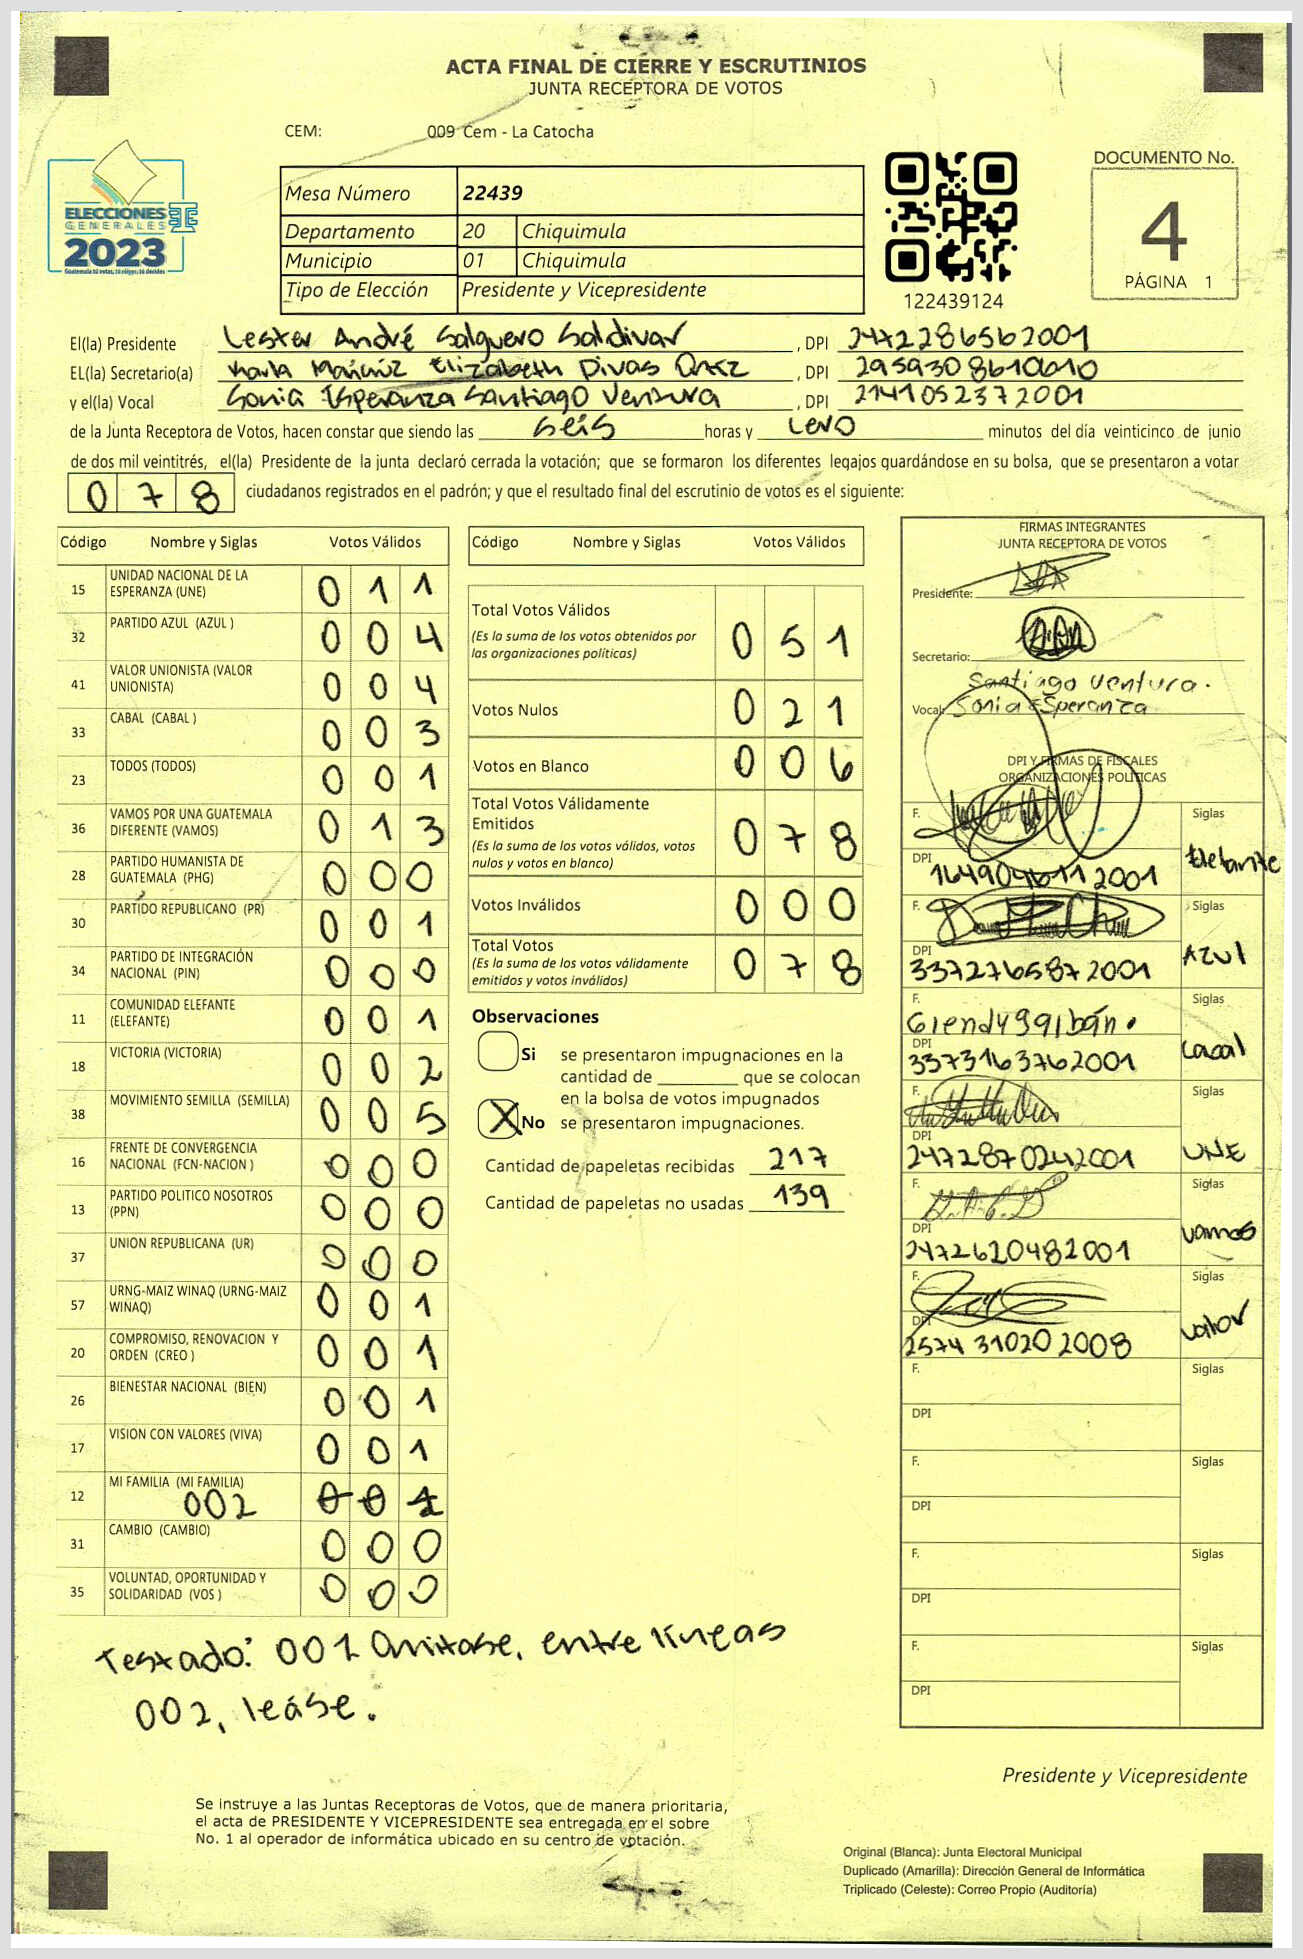 ACTA FINAL DE CIERRE Y ESCRUTINIOS
JUNTA RECEPTORA DE VOTOS
CEM: 009 Cem - La Catocha
ELECCIONES
GENERALES
2023
Guatemala tú votas, tú eliges, tú decides
Mesa Número 22439
Departamento 20 Chiquimula
Municipio 01 Chiquimula
Tipo de Elección Presidente y Vicepresidente
122439124
DOCUMENTO No.
4
PÁGINA 1
El(la) Presidente Lester André Salguero Saldivar, DPI 2472286562001
EL(la) Secretario(a) Karla Elizabeth Divas, DPI 2959308610610
y el(la) Vocal Sonia Esperanza Santiago Ventura, DPI 2141052372001
de la Junta Receptora de Votos, hacen constar que siendo las seis horas y cero minutos del día veinticinco de junio
de dos mil veintitrés, el(la) Presidente de la junta declaró cerrada la votación; que se formaron los diferentes legajos guardándose en su bolsa, que se presentaron a votar
0 7 8 ciudadanos registrados en el padrón; y que el resultado final del escrutinio de votos es el siguiente:
Código Nombre y Siglas Votos Válidos
15 UNIDAD NACIONAL DE LA ESPERANZA (UNE) 0 1 1
32 PARTIDO AZUL (AZUL ) 0 0 4
41 VALOR UNIONISTA (VALOR UNIONISTA) 0 0 4
33 CABAL (CABAL ) 0 0 3
23 TODOS (TODOS) 0 0 1
36 VAMOS POR UNA GUATEMALA DIFERENTE (VAMOS) 0 1 3
28 PARTIDO HUMANISTA DE GUATEMALA (PHG) 0 0 0
30 PARTIDO REPUBLICANO (PR) 0 0 1
34 PARTIDO DE INTEGRACIÓN NACIONAL (PIN) 0 0 0
11 COMUNIDAD ELEFANTE (ELEFANTE) 0 0 1
18 VICTORIA (VICTORIA) 0 0 2
38 MOVIMIENTO SEMILLA (SEMILLA) 0 0 5
16 FRENTE DE CONVERGENCIA NACIONAL (FCN-NACION ) 0 0 0
13 PARTIDO POLITICO NOSOTROS (PPN) 0 0 0
37 UNION REPUBLICANA (UR) 0 0 0
57 URNG-MAIZ WINAQ (URNG-MAIZ WINAQ) 0 0 1
20 COMPROMISO, RENOVACION Y ORDEN (CREO ) 0 0 1
26 BIENESTAR NACIONAL (BIEN) 0 0 1
17 VISION CON VALORES (VIVA) 0 0 1
12 MI FAMILIA (MI FAMILIA) 002 0 0 1
31 CAMBIO (CAMBIO) 0 0 0
35 VOLUNTAD, OPORTUNIDAD Y SOLIDARIDAD (VOS ) 0 0 0
Testado: 001 Omitase, entre lineas
002, leáse.
Código Nombre y Siglas Votos Válidos
Total Votos Válidos 0 5 1
(Es la suma de los votos obtenidos por
las organizaciones políticas)
Votos Nulos 0 2 1
Votos en Blanco 0 0 6
Total Votos Válidamente
Emitidos 0 7 8
(Es la suma de los votos válidos, votos
nulos y votos en blanco)
Votos Inválidos 0 0 0
Total Votos 0 7 8
(Es la suma de los votos válidamente
emitidos y votos inválidos)
Observaciones
Si se presentaron impugnaciones en la
cantidad de ________ que se colocan
en la bolsa de votos impugnados
X No se presentaron impugnaciones.
Cantidad de papeletas recibidas 217
Cantidad de papeletas no usadas 139
FIRMAS INTEGRANTES
JUNTA RECEPTORA DE VOTOS
Presidente:
Secretario:
Santiago Ventura.
Vocal: Sonia Esperanza
DPI Y FIRMAS DE FISCALES
ORGANIZACIONES POLITICAS
F. Siglas
DPI 1649046112001 Elefante
F. Siglas
DPI 3372765872001 Azul
F. Siglas
DPI 3373163762001
F. Siglas
DPI 2472870242001 UNE
F. Siglas
DPI 2472620482001 vamos
F. Siglas
DPI 2574 31020 2008 valor
F. Siglas
DPI
F. Siglas
DPI
F. Siglas
DPI
F. Siglas
DPI
Presidente y Vicepresidente
Se instruye a las Juntas Receptoras de Votos, que de manera prioritaria,
el acta de PRESIDENTE Y VICEPRESIDENTE sea entregada en el sobre
No. 1 al operador de informática ubicado en su centro de votación.
Original (Blanca): Junta Electoral Municipal
Duplicado (Amarilla): Dirección General de Informática
Triplicado (Celeste): Correo Propio (Auditoría)